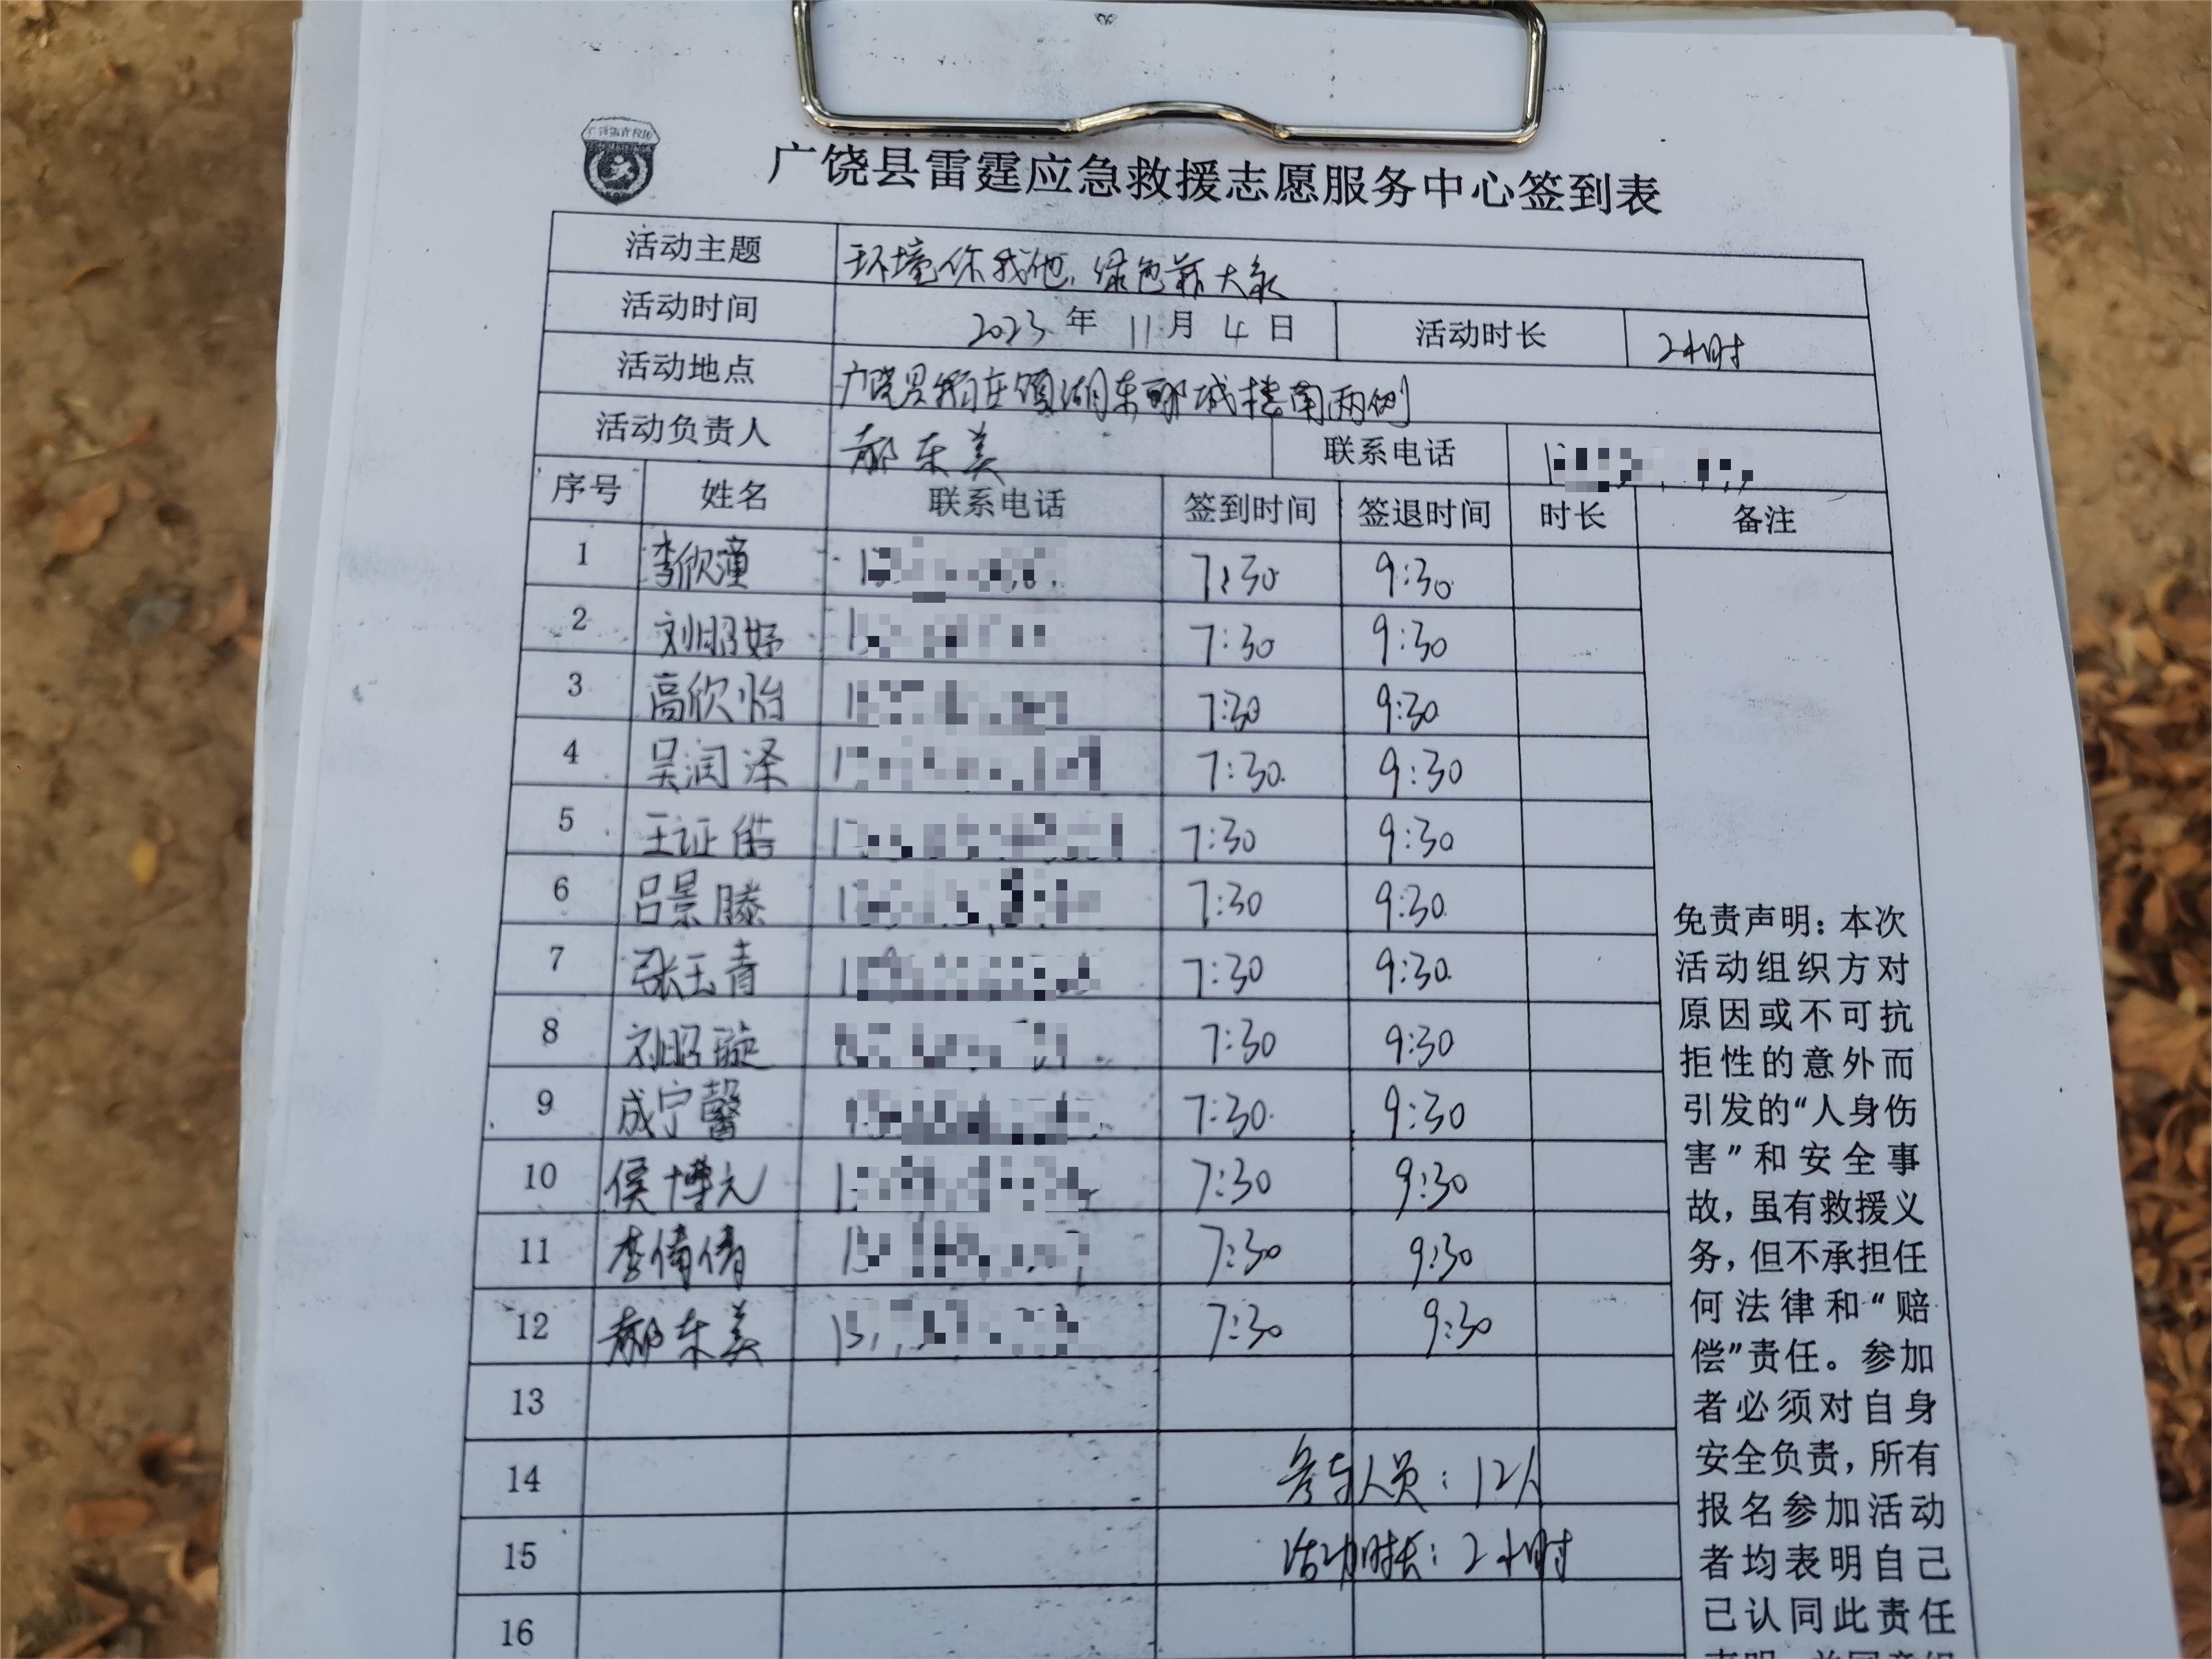 广饶县雷霆应急救援志愿服务中心签到表
活动主题 环境你我他，绿色靠大家
活动时间 2023 年 11 月 4 日 活动时长 2小时
活动地点 广饶县 湖东 城楼南两侧
活动负责人 郝东美 联系电话
序号 姓名 联系电话 签到时间 签退时间 时长 备注
1 李欣潼 7:30 9:30
2 刘昭妤 7:30 9:30
3 高欣怡 7:30 9:30
4 吴润泽 7:30 9:30
5 王证皓 7:30 9:30
6 吕景滕 7:30 9:30
7 张玉青 7:30 9:30
8 刘昭璇 7:30 9:30
9 成宁馨 7:30 9:30
10 侯博元 7:30 9:30
11 李倩倩 7:30 9:30
12 郝东美 7:30 9:30
13
14 参与人员：12人
15 活动时长：2小时
16
免责声明：本次
活动组织方对
原因或不可抗
拒性的意外而
引发的“人身伤
害”和安全事
故，虽有救援义
务，但不承担任
何法律和“赔
偿”责任。参加
者必须对自身
安全负责，所有
报名参加活动
者均表明自己
已认同此责任